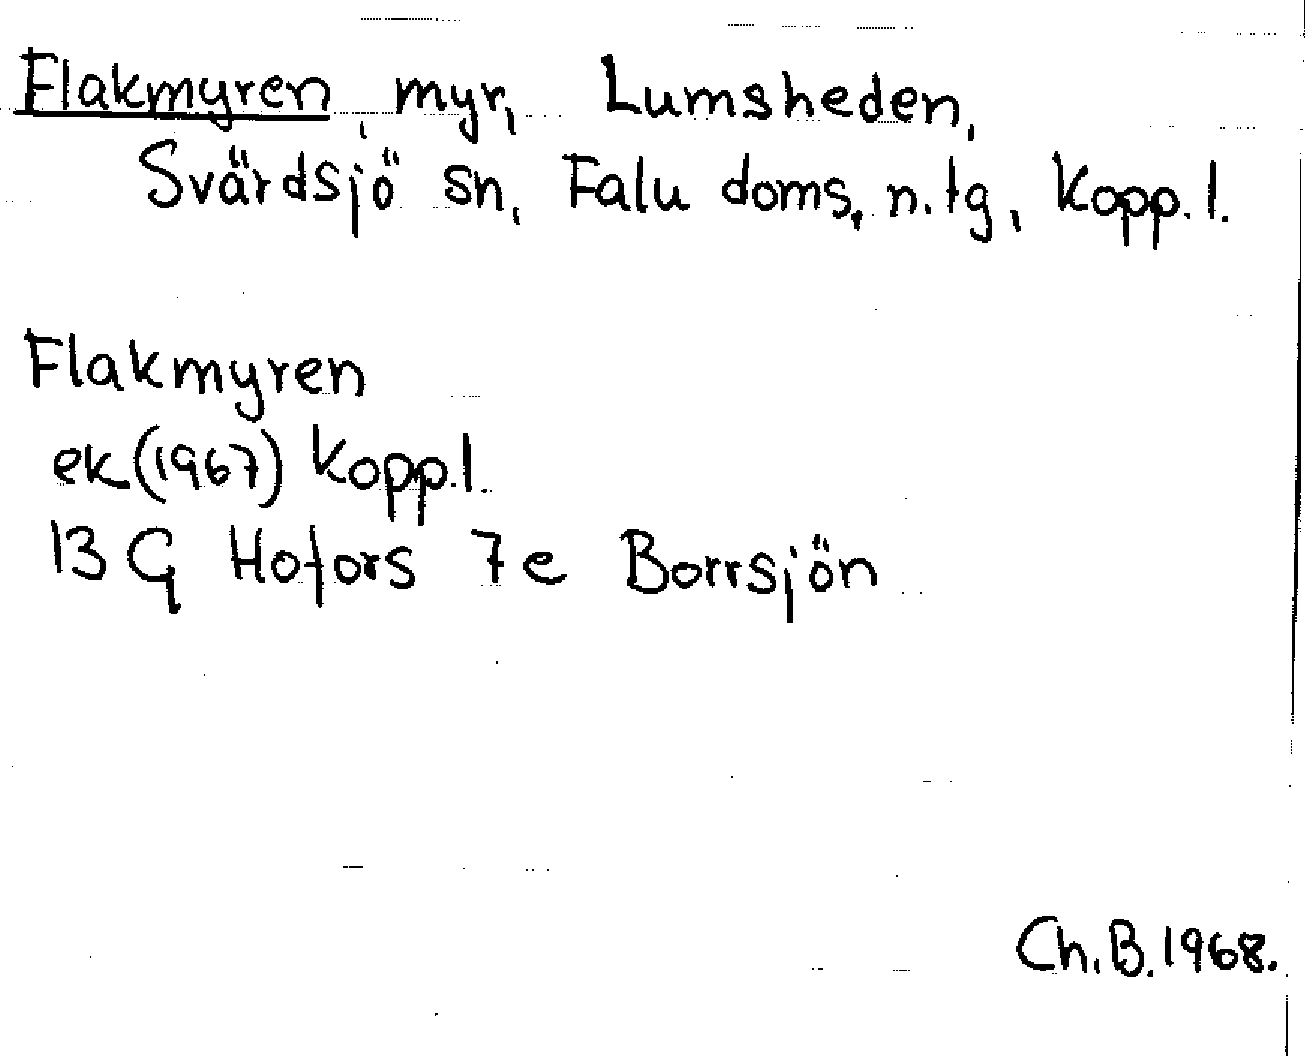 Flakmyren, myr, Lumsheden,
Svärdsjö sn, Falu doms. n. tg, Kopp. l.
Flakmyren
ek (1967) Kopp. l.
13 G Hofors 7e Borrsjön
Ch. B. 1968.